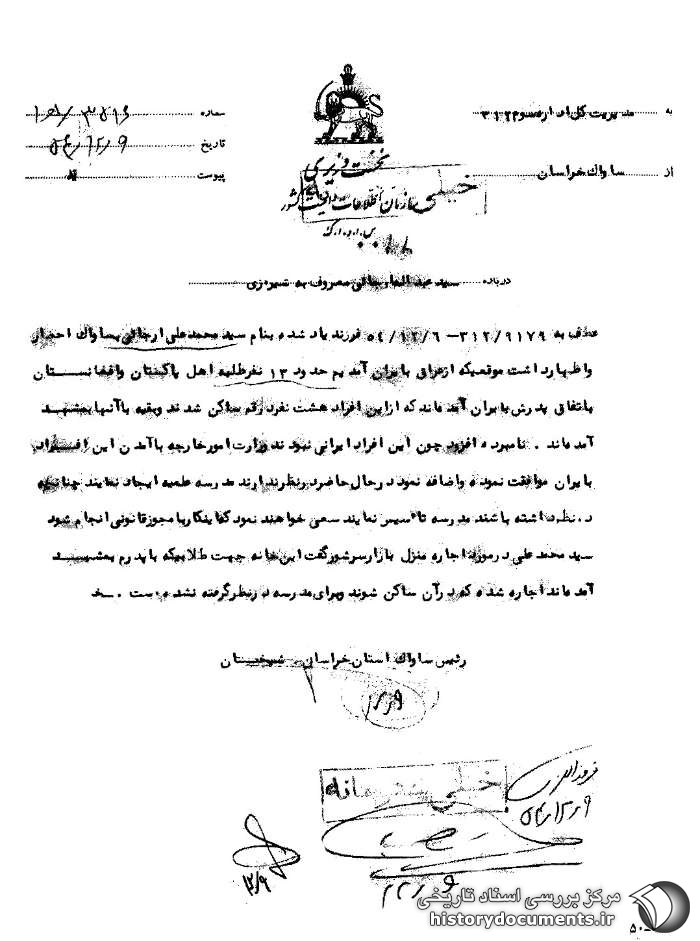 به مدیریت کل اداره سوم ۳۱۲
از ساواک خراسان
شماره
تاریخ ۵۴/۱۲/۹
پیوست
نخست وزیری
سازمان اطلاعات و امنیت کشور
س.ا.و.ا.ک
خیلی
درباره سید عبدالله معروف به شیرازی
عطف به ۳۱۲/۹۱۷۹ - ۵۴/۱۲/۶ فرزند یاد شده بنام سید محمدعلی ارجائی بساواک احضار
و اظهار داشت موقعیکه از عراق بایران آمدیم حدود ۱۳ نفر طلبه اهل پاکستان و افغانستان
باتفاق پدرش بایران آمده‌اند که از این افراد هشت نفر در قم ساکن شدند و بقیه با آنها بمشهد
آمده‌اند . نامبرده افزود چون این افراد ایرانی نبودند وزارت امور خارجه با آمدن این افراد
بایران موافقت نموده و اضافه نمود در حال حاضر در نظر ندارند مدرسه علمیه ایجاد نمایند چنانچه
در نظر داشته باشند مدرسه تاسیس نمایند سعی خواهند نمود که اینکار با مجوز قانونی انجام شود
سید محمدعلی در مورد اجاره منزل بازار سرشور گفت این خانه جهت طلابیکه با پدرم بمشهد
آمده‌اند اجاره شده که در آن ساکن شوند و برای مدرسه در نظر گرفته نشده است . خ
رئیس ساواک استان خراسان . شیخان
۱۲/۹
خیلی محرمانه
۵۴/۱۲/۹
۱۲/۹
مرکز بررسی اسناد تاریخی
historydocuments.ir
۵۰-